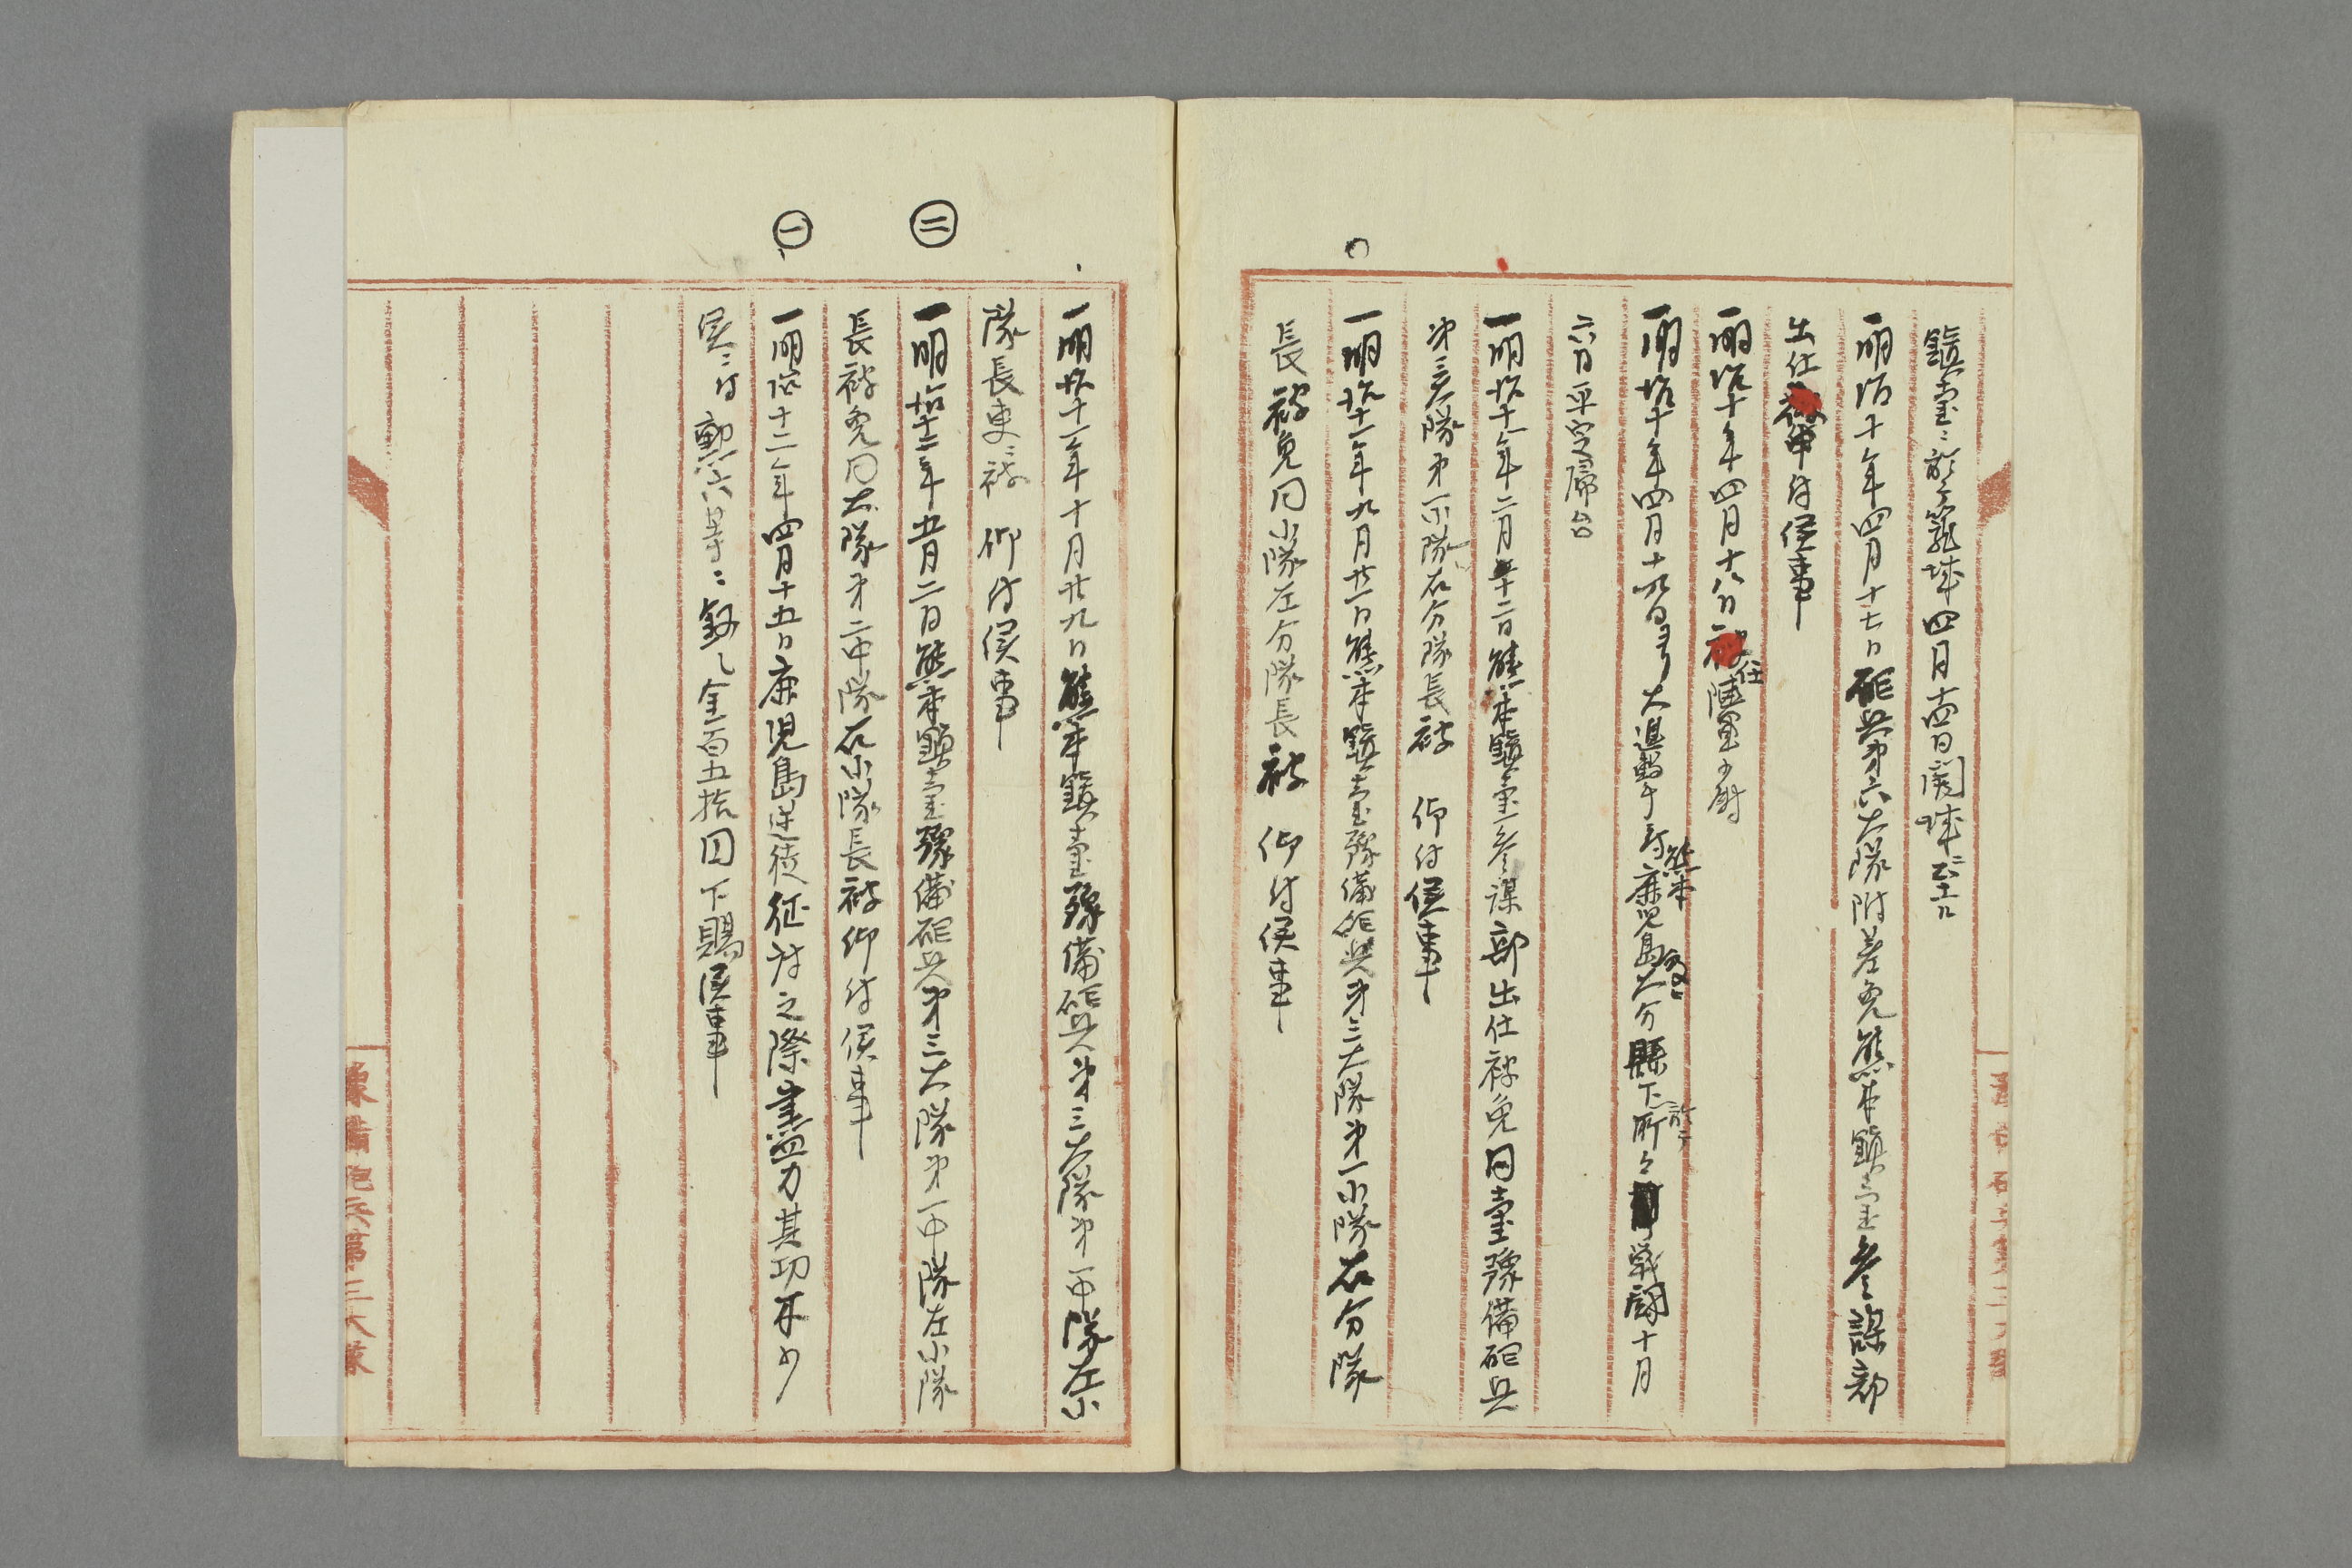 鎮臺ニ於テ籠城四月十四日開城
一明治十年四月十七日砲兵第六大隊附差免熊本鎮臺参謀部
出仕申付候事
一明治十年四月十八日任陸軍少尉
一明治十年四月十九日ヨリ大進撃熊本鹿児島大分縣下於テ所々戦闘十月
六日平定帰台
一明治十一年二月十二日熊本鎮臺参謀部出仕被免同臺豫備砲兵
第三大隊第一小隊右分隊長被 仰付候事
一明治十一年九月廿一日熊本鎮臺豫備砲兵第三大隊第一小隊右分隊
長被免同小隊左分隊長被 仰付候事
一明治十一年十月廿九日熊本鎮臺豫備砲兵第三大隊第一中隊左小
隊長更ニ被 仰付候事
㊁
一明治十二年五月二日熊本鎮臺豫備砲兵第三大隊第一中隊左小隊
長被免同大隊第二中隊右小隊長被仰付候事
㊀
一明治十二年四月十五日鹿児島逆徒征討之際盡力其功不少
候ニ付勲六等ニ叙シ金百五拾円下賜候事
豫備砲兵第三大隊